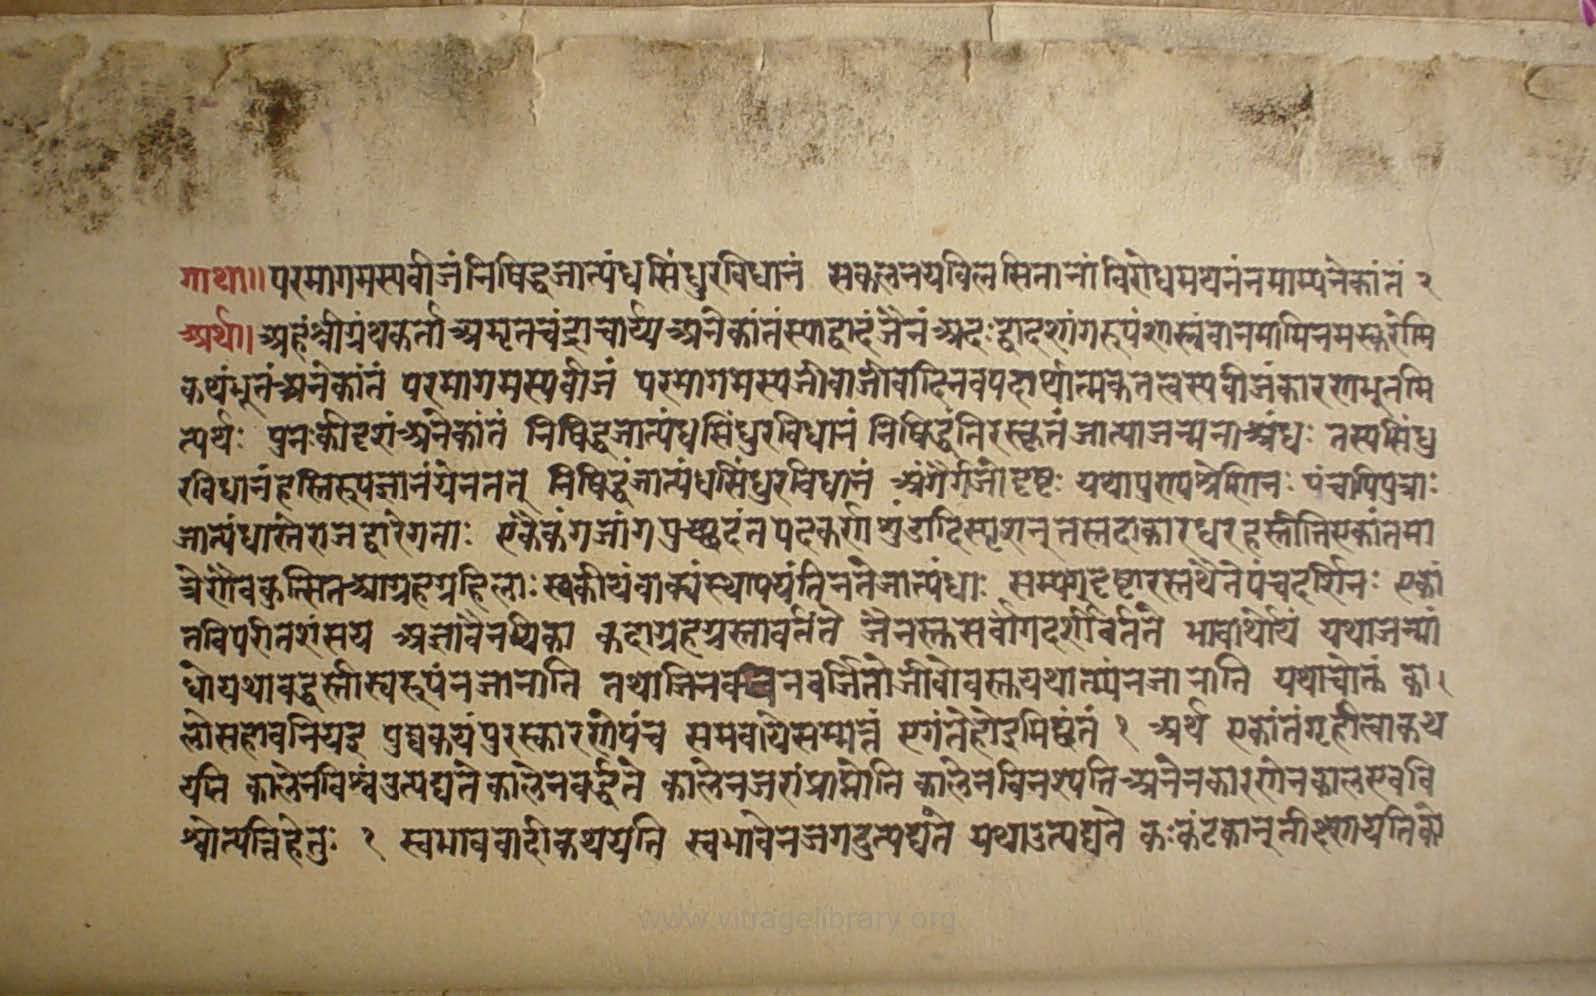 गाथा॥ परमागमस्यवीजंनिषिद्धजात्यंधसिंधुरविधानं सकलनयविलसितानांविरोधमथनंनमाम्यनेकांतं २
अर्था। अहंश्रीग्रंथकर्ताअमृतचंद्राचार्य्यअनेकांतंस्याद्वादंजैनंअदःद्वादशांगरूपंशास्त्रंवानमामिनमस्करोमि
कथंभूतंअनेकांतं परमागमस्यवीजं परमागमस्यजीवाजीवादिनवपदार्थात्मकतत्वस्यवीजंकारणभूतमि
त्यर्थः पुनःकीदृशंअनेकांतं निषिद्धजात्यंधसिंधुरविधानं निषिद्धंनिरस्कृतंजात्याजन्मनाअंधः तस्यसिंधु
रविधानंहस्तिरूपज्ञानंयेनतत् निषिद्धंजात्यंधसिंधुरविधानं अंगैर्गजोदृष्टः यथापुरुपश्रेणिनः पंचापिपुत्राः
जात्यंधास्तेराजद्वारेगताः एकैकंगजांगपुच्छदंतपदकर्णशुंडादिस्पृशन्तस्तदाकारधरहस्तीतिएकांतमा
त्रेणैवकुत्सितआग्रहग्रहिलाः स्वकीयंवाक्यंस्थापयंतिनतेजात्यंधाः सम्यग्दृष्टारस्तथैतेपंचदर्शिनः एकां
तविपरीतशंसय अज्ञोवैनयिका कदाग्रहग्रस्तावर्तंते जैनस्तुसर्वांगदर्शीवर्तते भावार्थोयं यथाजन्मां
धोयथावद्धस्तीस्वरूपंनजानाति तथाजिनवचनवर्जितोजीवोवस्तुयथातथ्यंनजानाति यथाचोक्तं का।
लोसहावनियइ पुव्वकयंपुरस्काररणेपंच समवायेसम्मत्तं एगंतेहोइमिछंतं १ अर्थ एकांतंगृहीत्वाकथ
यति कालेनविश्वंउत्पद्यतेकालेनवर्द्धते कालेनजरांप्राप्नोति कालेनविनश्यतिअनेनकारणेनकालएवबि
श्वोत्पत्तिहेतुः १ स्वभाववादीकथयति स्वभावेनजगदुत्पद्यंते यथाउत्पद्यते कःकंटकान्तीक्ष्णयतिको
www.vitragelibrary.org